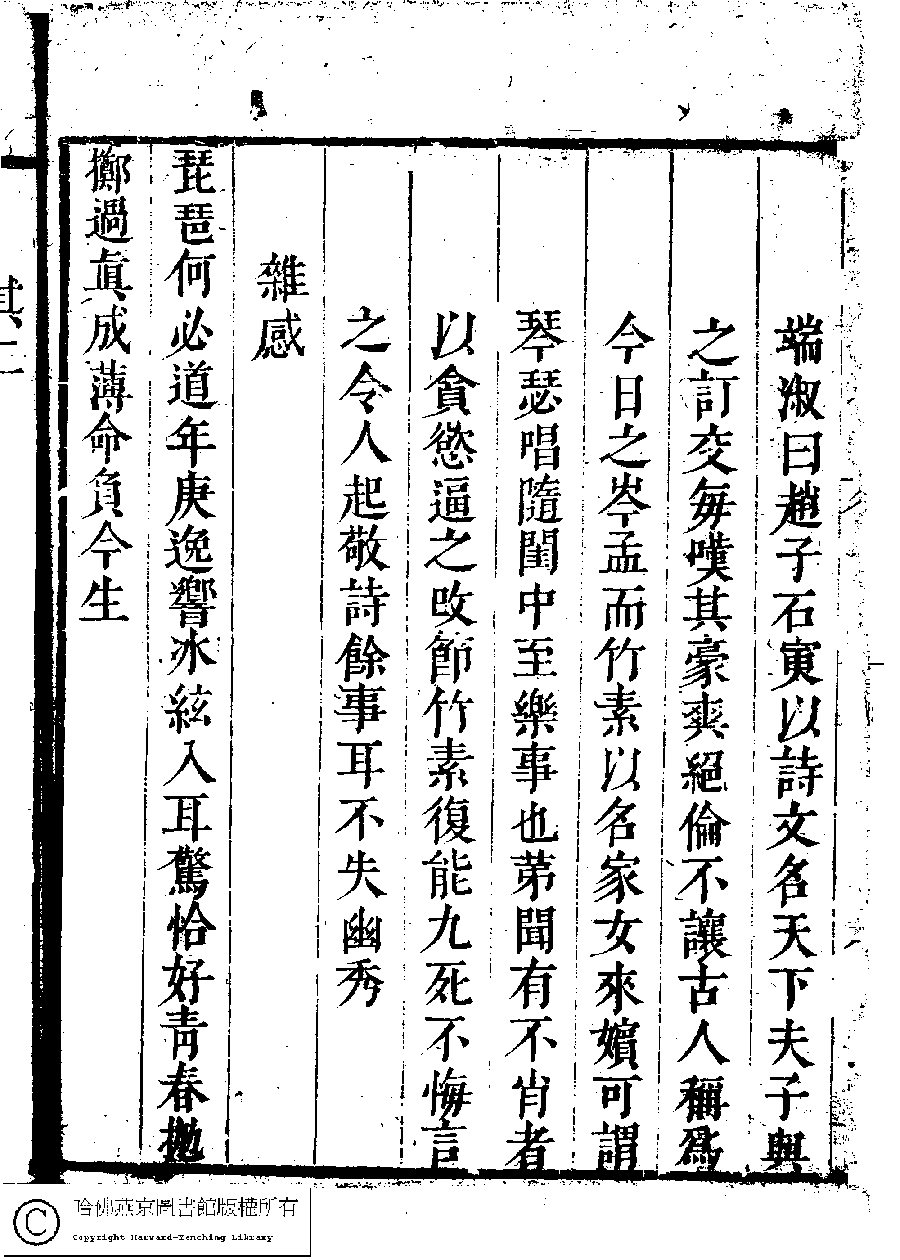 端淑曰趙子石寅以詩文名天下夫子與
之訂交每嘆其豪爽絕倫不讓古人稱爲
今日之岑孟而竹素以名家女來嬪可謂
琴瑟唱隨閨中至樂事也苐聞有不肖者
以貪慾逼之改節竹素復能九死不悔言
之令人起敬詩餘事耳不失幽秀
雜感
琵琶何必道年庚逸響冰絃入耳驚恰好青春拋
擲過眞成薄命負今生
其二
哈佛燕京圖書館版權所有
Copyright Harvard-Yenching Library